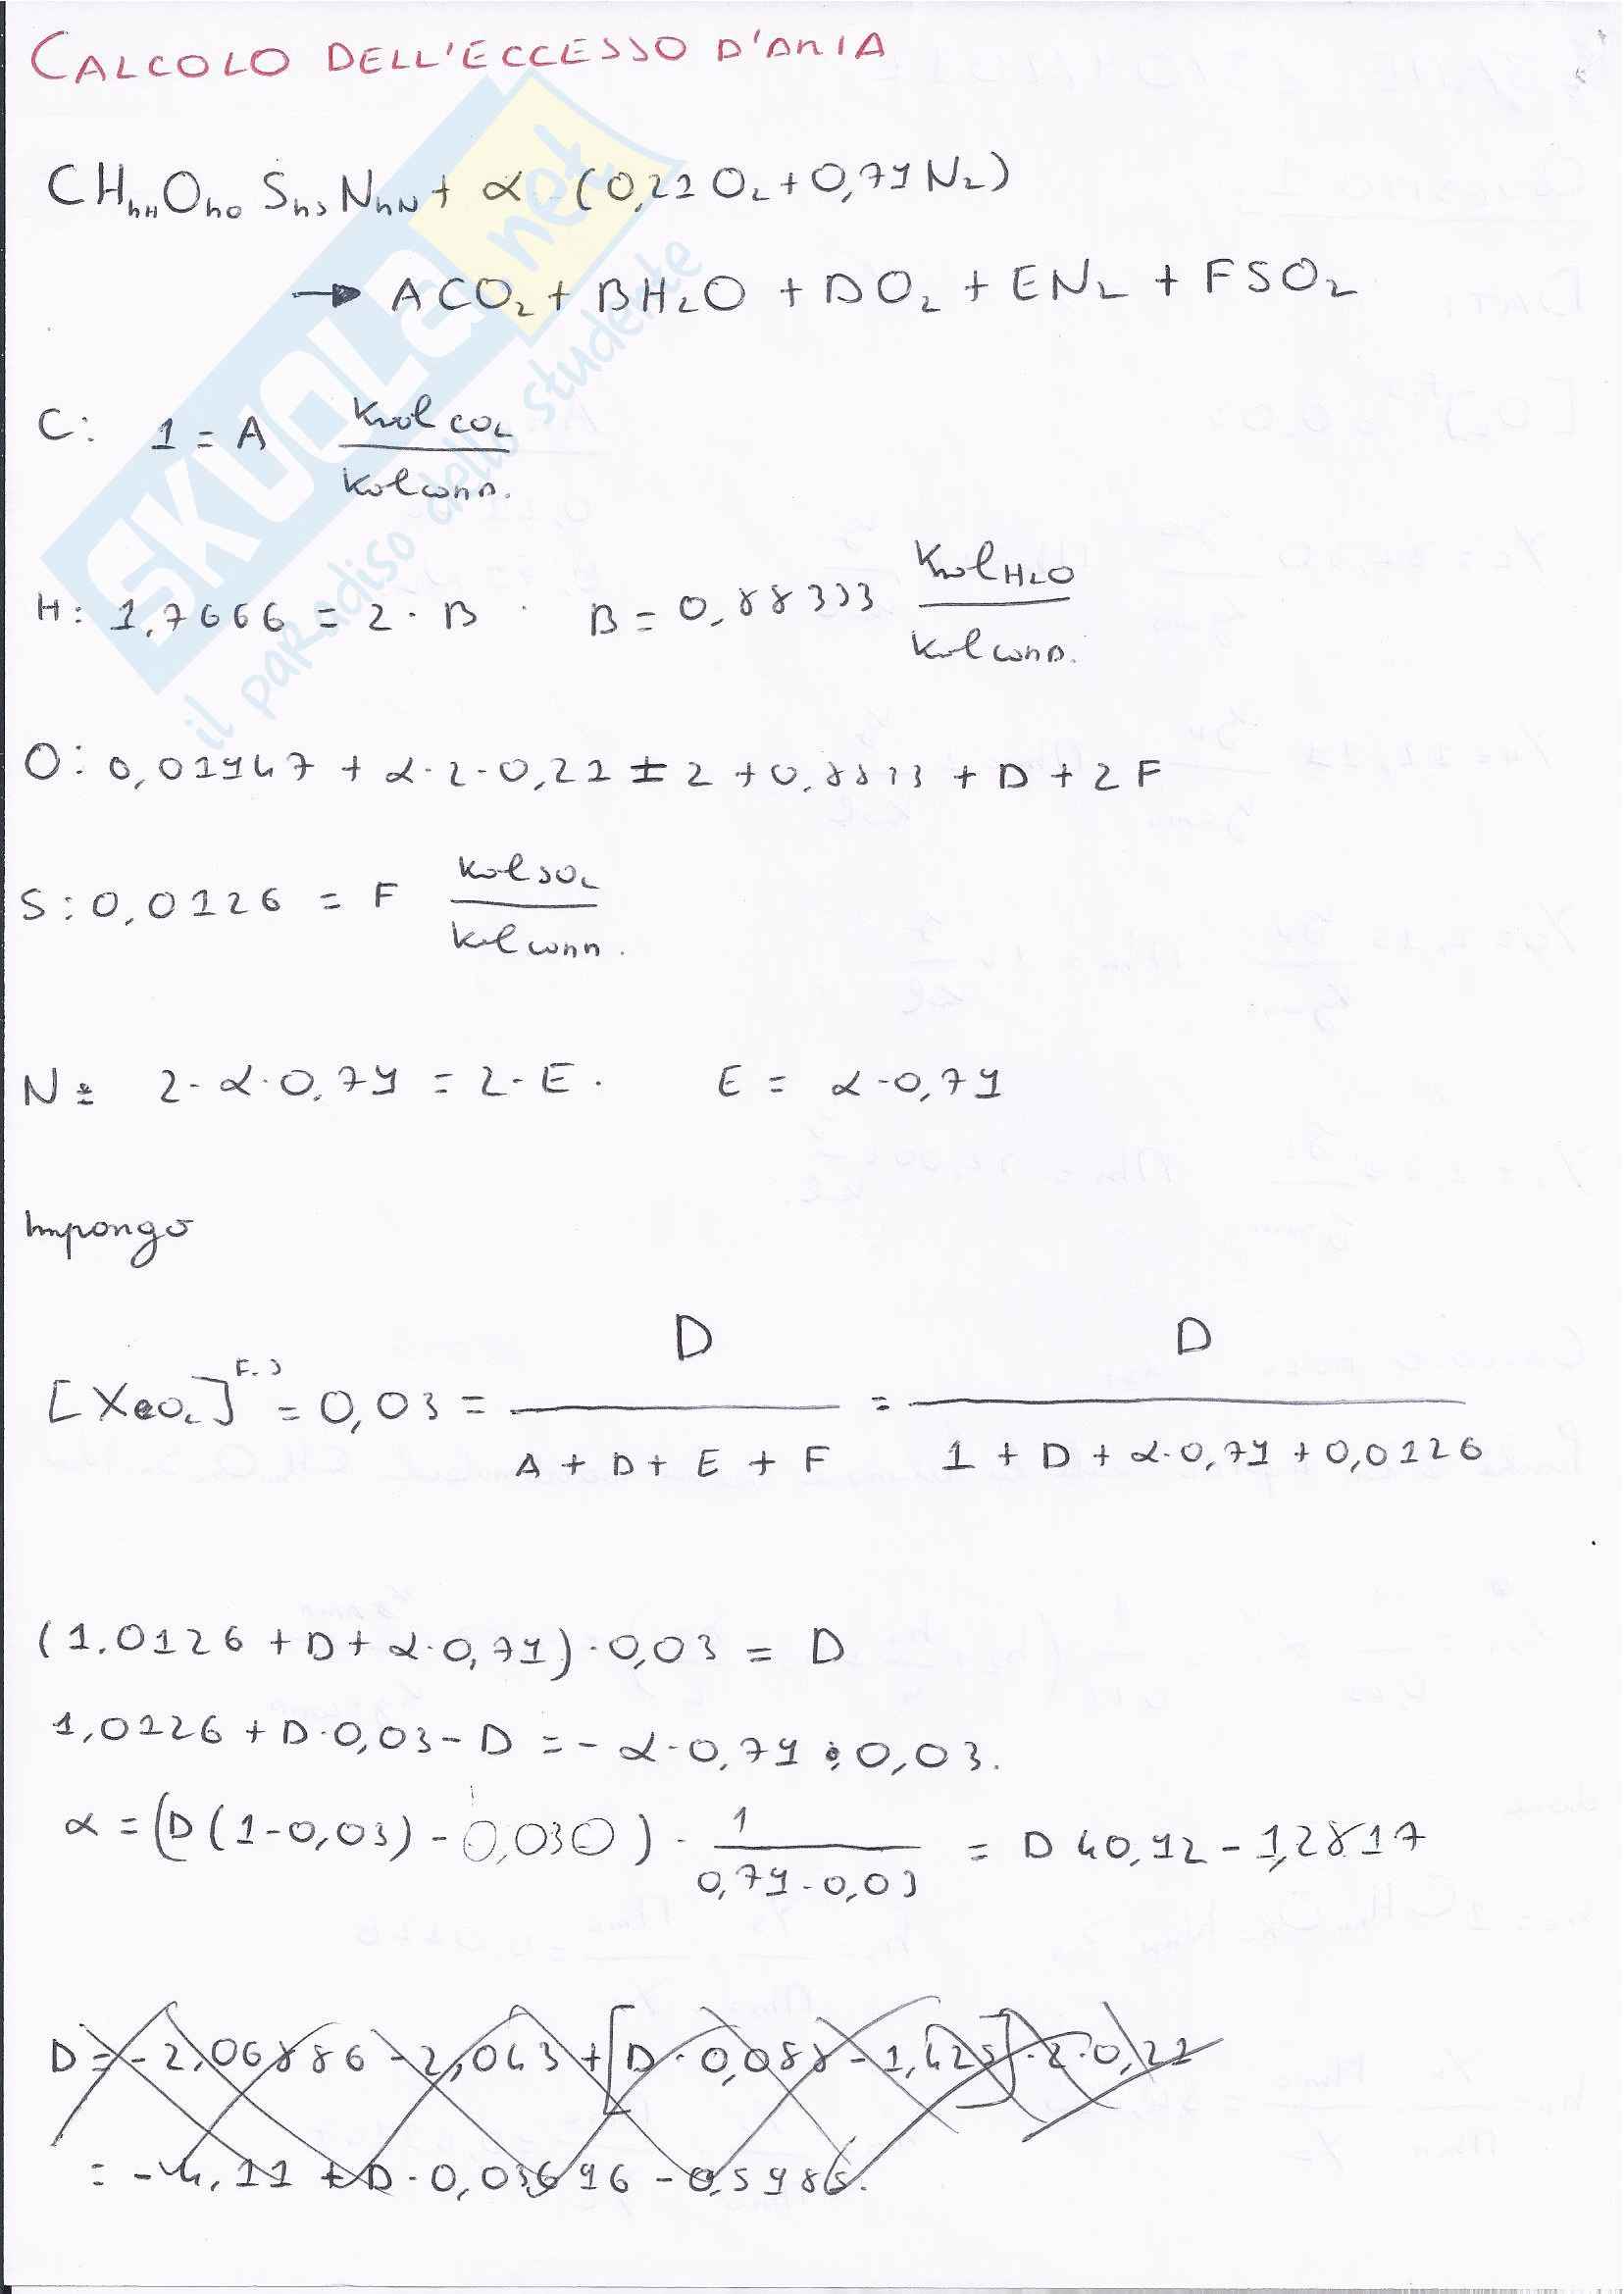 CALCOLO DELL'ECCESSO D'ARIA
CHnHOnOSnSNnN + α (0,21O2+0,79N2)
→ ACO2 + BH2O + DO2 + EN2 + FSO2
C: 1 = A kmolCO2
kmolcomb.
H: 1,7666 = 2 · B B = 0,88333 kmolH2O
kmolcomb.
O: 0,01947 + α·2·0,21 = 2 + 0,8833 + D + 2F
S: 0,0126 = F kmolSO2
kmolcomb.
N: 2·α·0,79 = 2·E. E = α·0,79
Impongo
D D
[XO2]F.S = 0,03 = =
A + D + E + F 1 + D + α·0,79 + 0,0126
(1.0126 + D + α·0,79)·0,03 = D
1,0126 + D·0,03 - D = - α·0,79·0,03.
α = (D(1-0,03) - 0,030) · 1 = D 40,92 - 1,2817
0,79·0,03
D = -2,06886 - 2,043 + [D·0,088 - 1,425]·2·0,21
= -4,11 + D·0,03696 - 0,5985.
SKUOLA.net
il paradiso dello studente